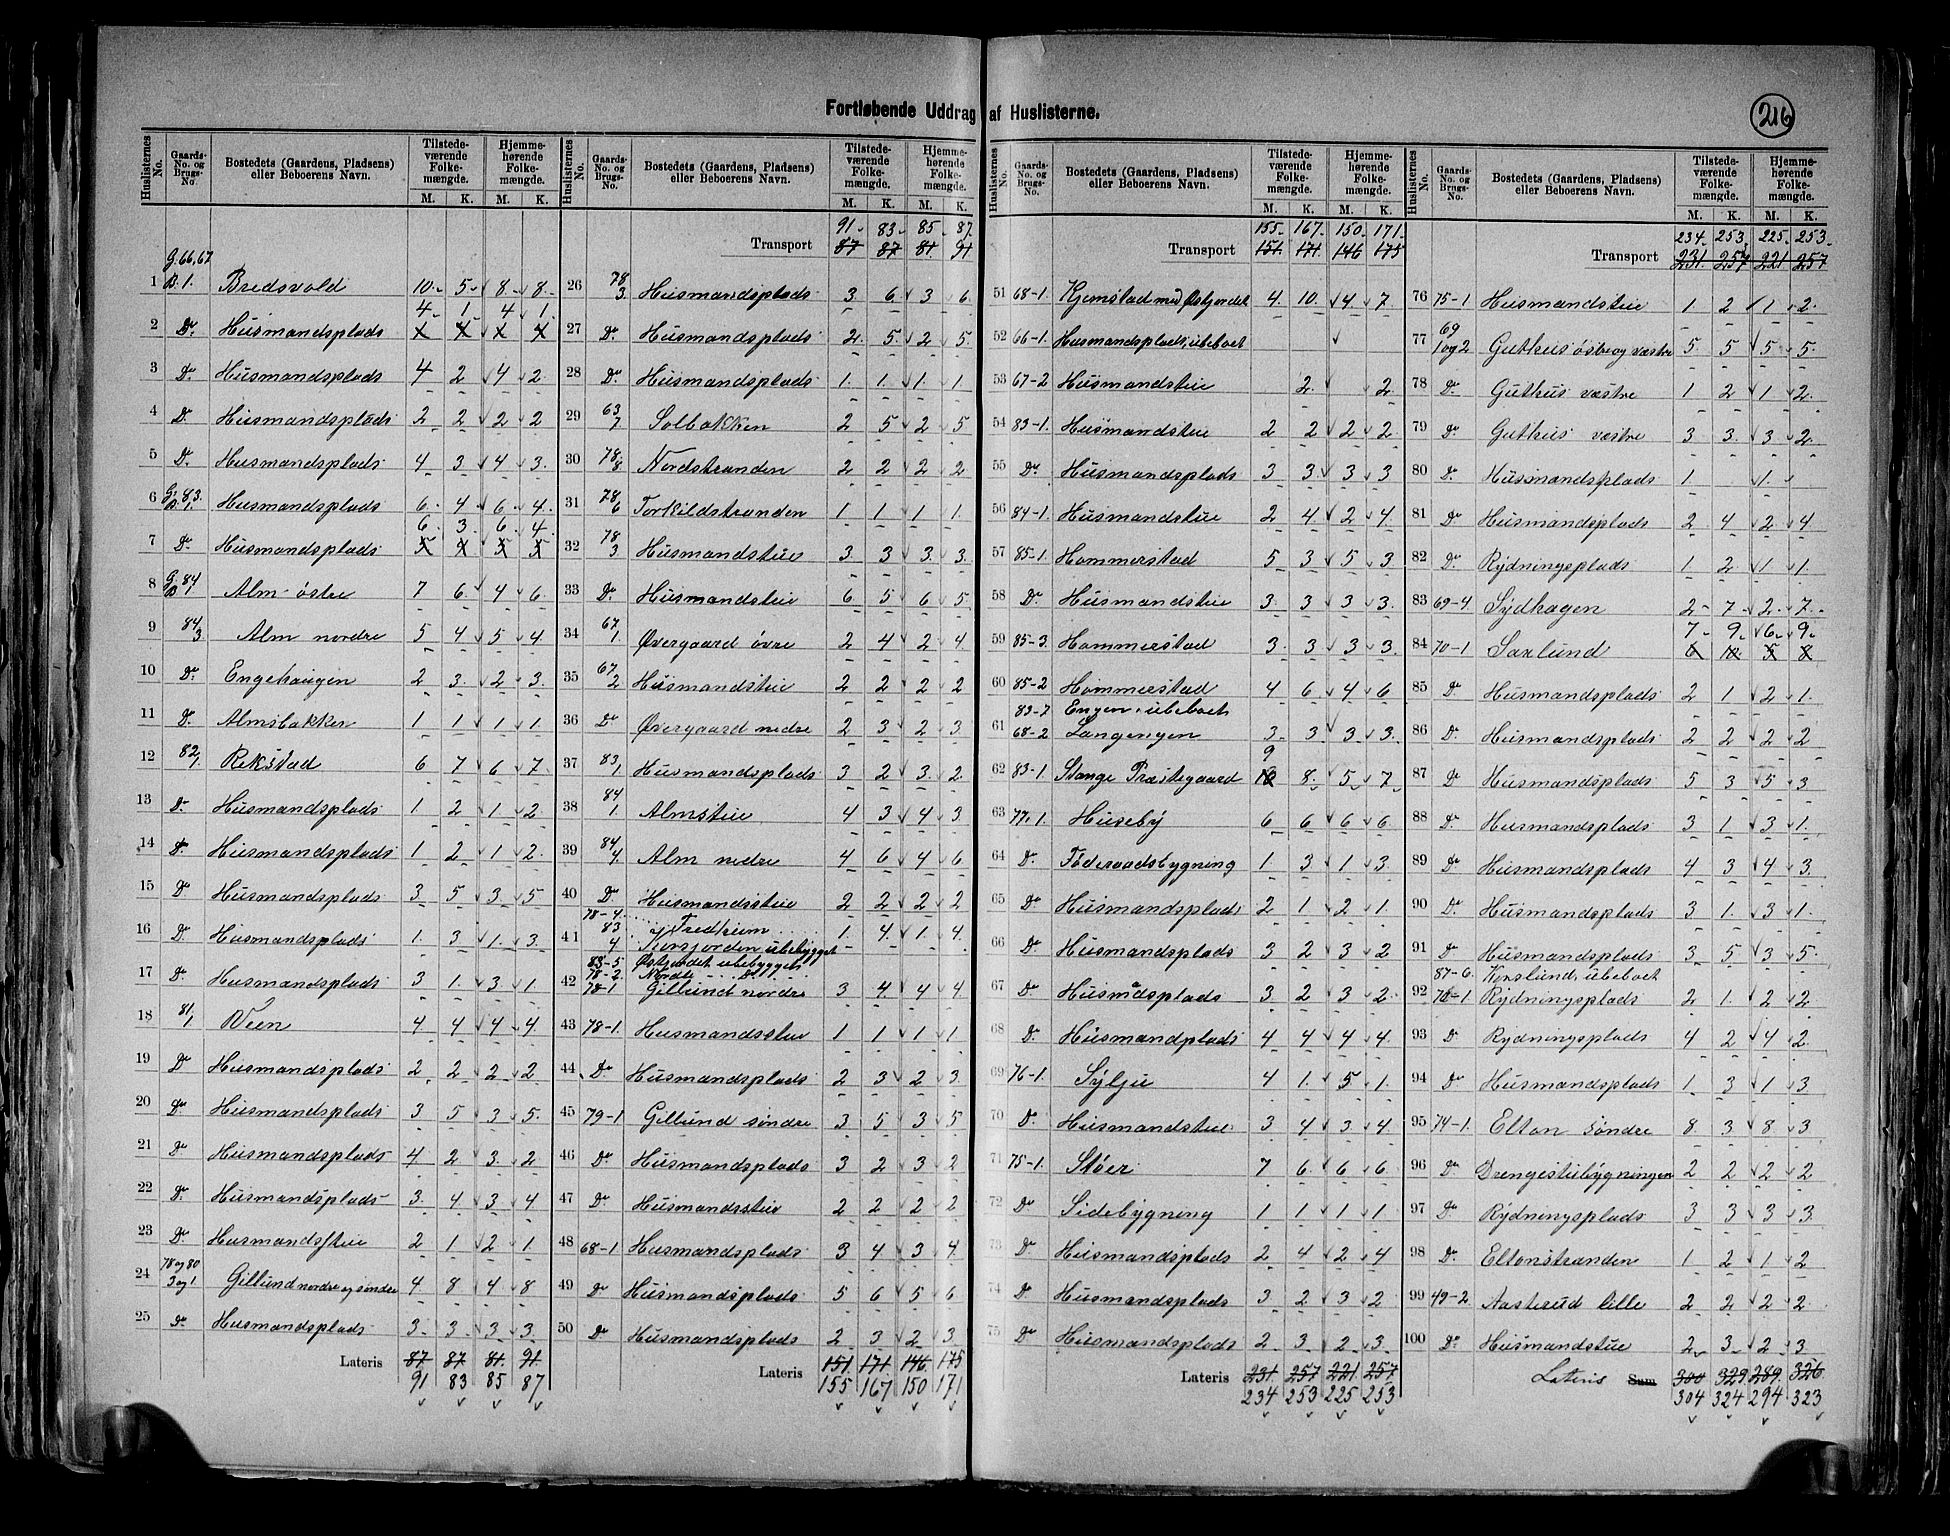 Fortløbende Uddrag af Huslisterne.
216
Huslisternes No.
Gaards-No. og Brugs-No.
Bostedets (Gaardens, Pladsens) eller Beboerens Navn.
Tilstedeværende Folkemængde.
Hjemmehørende Folkemængde.
M. K. M. K.
G. 66,67
1 B. 1. Bredsvold 10 5 8 8
4 1 4 1
2 Do Husmandsplads
3 Do Husmandsplads 4 2 4 2
4 Do Husmandsplads 2 2 2 2
5 Do Husmandsplads 4 3 4 3
6 G. 83. B. 1. Husmandsplads 6 4 6 4
6 3 6 4
7 Do Husmandsplads 5 4 5 5
8 G. 84 B 1 Alm østre 7 6 4 6
9 84/3 Alm nordre 5 4 5 4
10 Do Engehaugen 2 3 2 3
11 Do Almsbakken 1 1 1 1
12 82/1 Rekstad 6 7 6 7
13 Do Husmandsplads 1 2 1 2
14 Do Husmandsplads 1 2 1 2
15 Do Husmandsplads 3 5 3 5
16 Do Husmandsplads 1 3 1 3
17 Do Husmandsplads 3 1 3 1
18 81/1 Veen 4 4 4 4
19 Do Husmandsplads 2 2 2 2
20 Do Husmandsplads 3 5 3 5
21 Do Husmandsplads 4 2 3 2
22 Do Husmandsplads 3 4 3 4
23 Do Husmandsstue 2 1 2 1
24 78 og 80 3 og 1 Gillund nordre og søndre 4 8 4 8
25 Do Husmandsplads 3 3 3 3
Lateris 87 87 81 91
91 83 85 87
Huslisternes No.
Gaards-No. og Brugs-No.
Bostedets (Gaardens, Pladsens) eller Beboerens Navn.
Tilstedeværende Folkemængde.
Hjemmehørende Folkemængde.
M. K. M. K.
91 83 85 87
Transport 87 87 81 91
26 78/3 Husmandsplads 3 6 3 6
27 Do Husmandsplads 2 5 2 5
28 Do Husmandsplads 1 1 1 1
29 63/7 Solbakken 2 5 2 5
30 78/8 Nordstranden 2 2 2 2
31 78/6 Torkildstranden 1 1 1 1
32 78/3 Husmandstue 3 3 3 3
33 Do Husmandstue 6 5 6 5
34 67/1 Øvergaard øvre 2 4 2 4
35 67/2 Husmandstue 2 2 2 2
36 Do Øvergaard nedre 2 3 2 3
37 83/1 Husmandsplads 3 2 3 2
38 84/1 Almstue 4 3 4 3
39 84/4 Alm nedre 4 6 4 6
40 Do Husmandsstue 2 2 2 2
41 78-4 Fredheim 1 4 1 4
83/4 ubebygget
83-5 Østjordet ubebygget
78-2 Nordli Do
42 78-1 Gillund nordre 3 4 4 4
43 78-1. Husmandsstue 1 1 1 1
44 Do Husmandsplads 2 3 2 3
45 79-1 Gillund søndre 3 5 3 5
46 Do Husmandsplads 3 2 3 2
47 Do Husmandsstue 2 2 2 2
48 68-1 Husmandsplads 3 4 3 4
49 Do Husmandsplads 5 6 5 6
50 Do Husmandsplads 2 3 2 3
Lateris 151 171 146 175
155 167 150 171
Huslisternes No.
Gaards-No. og Brugs-No.
Bostedets (Gaardens, Pladsens) eller Beboerens Navn.
Tilstedeværende Folkemængde.
Hjemmehørende Folkemængde.
M. K. M. K.
155 167 150 171
Transport 151 171 146 175
51 68-1. Kjemstad med Østjordet 4 10 4 7
52 66-1. Husmandsplads, ubeboet
53 67-2 Husmandstue 2 2
54 83-1. Husmandstue 2 2 2 2
55 Do Husmandsplads 3 3 3 3
56 84-1. Husmandstue 2 4 2 4
57 85-1. Hommerstad 5 3 5 3
58 Do Husmandstue 3 3 3 3
59 85-3. Hommerstad 3 3 3 3
60 85-2 Hommerstad 4 6 4 6
83-7 Engen, ubeboet
61 68-2 Langengen 3 3 3 3
9
62 83-1 Stange Præstegaard 10 8 5 7
63 77-1. Huseby 6 6 6 6
64 Do Føderaadsbygning 1 3 1 3
65 Do Husmandsplads 2 1 2 1
66 Do Husmandsplads 3 2 3 2
67 Do Husmdsplads 3 2 3 2
68 Do Husmandplads 4 4 4 4
69 76-1. Sylju 4 1 5 1
70 Do Husmandstue 3 4 3 4
71 75-1. Støer 7 6 6 6
72 Do Sidebygning 1 1 1 1
73 Do Husmandsplads 2 4 2 4
74 Do Husmandsplads 3 2 3 2
75 Do Husmandsplads 2 3 2 3
Lateris 231 257 221 257
234 253 225 253
Huslisternes No.
Gaards-No. og Brugs-No.
Bostedets (Gaardens, Pladsens) eller Beboerens Navn.
Tilstedeværende Folkemængde.
Hjemmehørende Folkemængde.
M. K. M. K.
234 253 225 253
Transport 231 257 221 257
76 75-1 Husmandstue 1 2 1 2
77 69 1 og 2 Guthus østre og væstre 5 5 5 5
78 Do Guthus væstre 1 2 1 2
79 Do Guthus væstre 3 3 3 2
80 Do Husmandsplads 1 1
81 Do Husmandsplads 2 4 2 4
82 Do Rydningsplads 1 2 1 1
83 69-4 Sydhagen 2 7 2 7
7 9 6 9
84 70-1 Saxlund 6 10 5 8
85 Do Husmandsplads 2 1 2 1
86 Do Husmandsplads 2 2 2 2
87 Do Husmandsplads 5 3 5 3
88 Do Husmandsplads 3 1 3 1
89 Do Husmandsplads 4 3 4 3
90 Do Husmandsplads 3 1 3 1
91 Do Husmandsplads 3 5 3 5
87-6. Korslund, ubeboet
92 70-1 Rydningsplads 2 1 2 2
93 Do Rydningsplads 4 2 4 2
94 Do Husmandsplads 1 3 1 3
95 74-1. Elton søndre 8 3 8 3
96 Do Drengestubygningen 2 2 2 2
97 Do Rydningsplads 3 3 3 3
98 Do Eltonstranden 1 2 1 2
99 49-2 Aasterud lille 2 2 2 2
100 Do Husmandstue 2 3 2 3
Lateris Sum 300 329 289 326
304 324 294 323